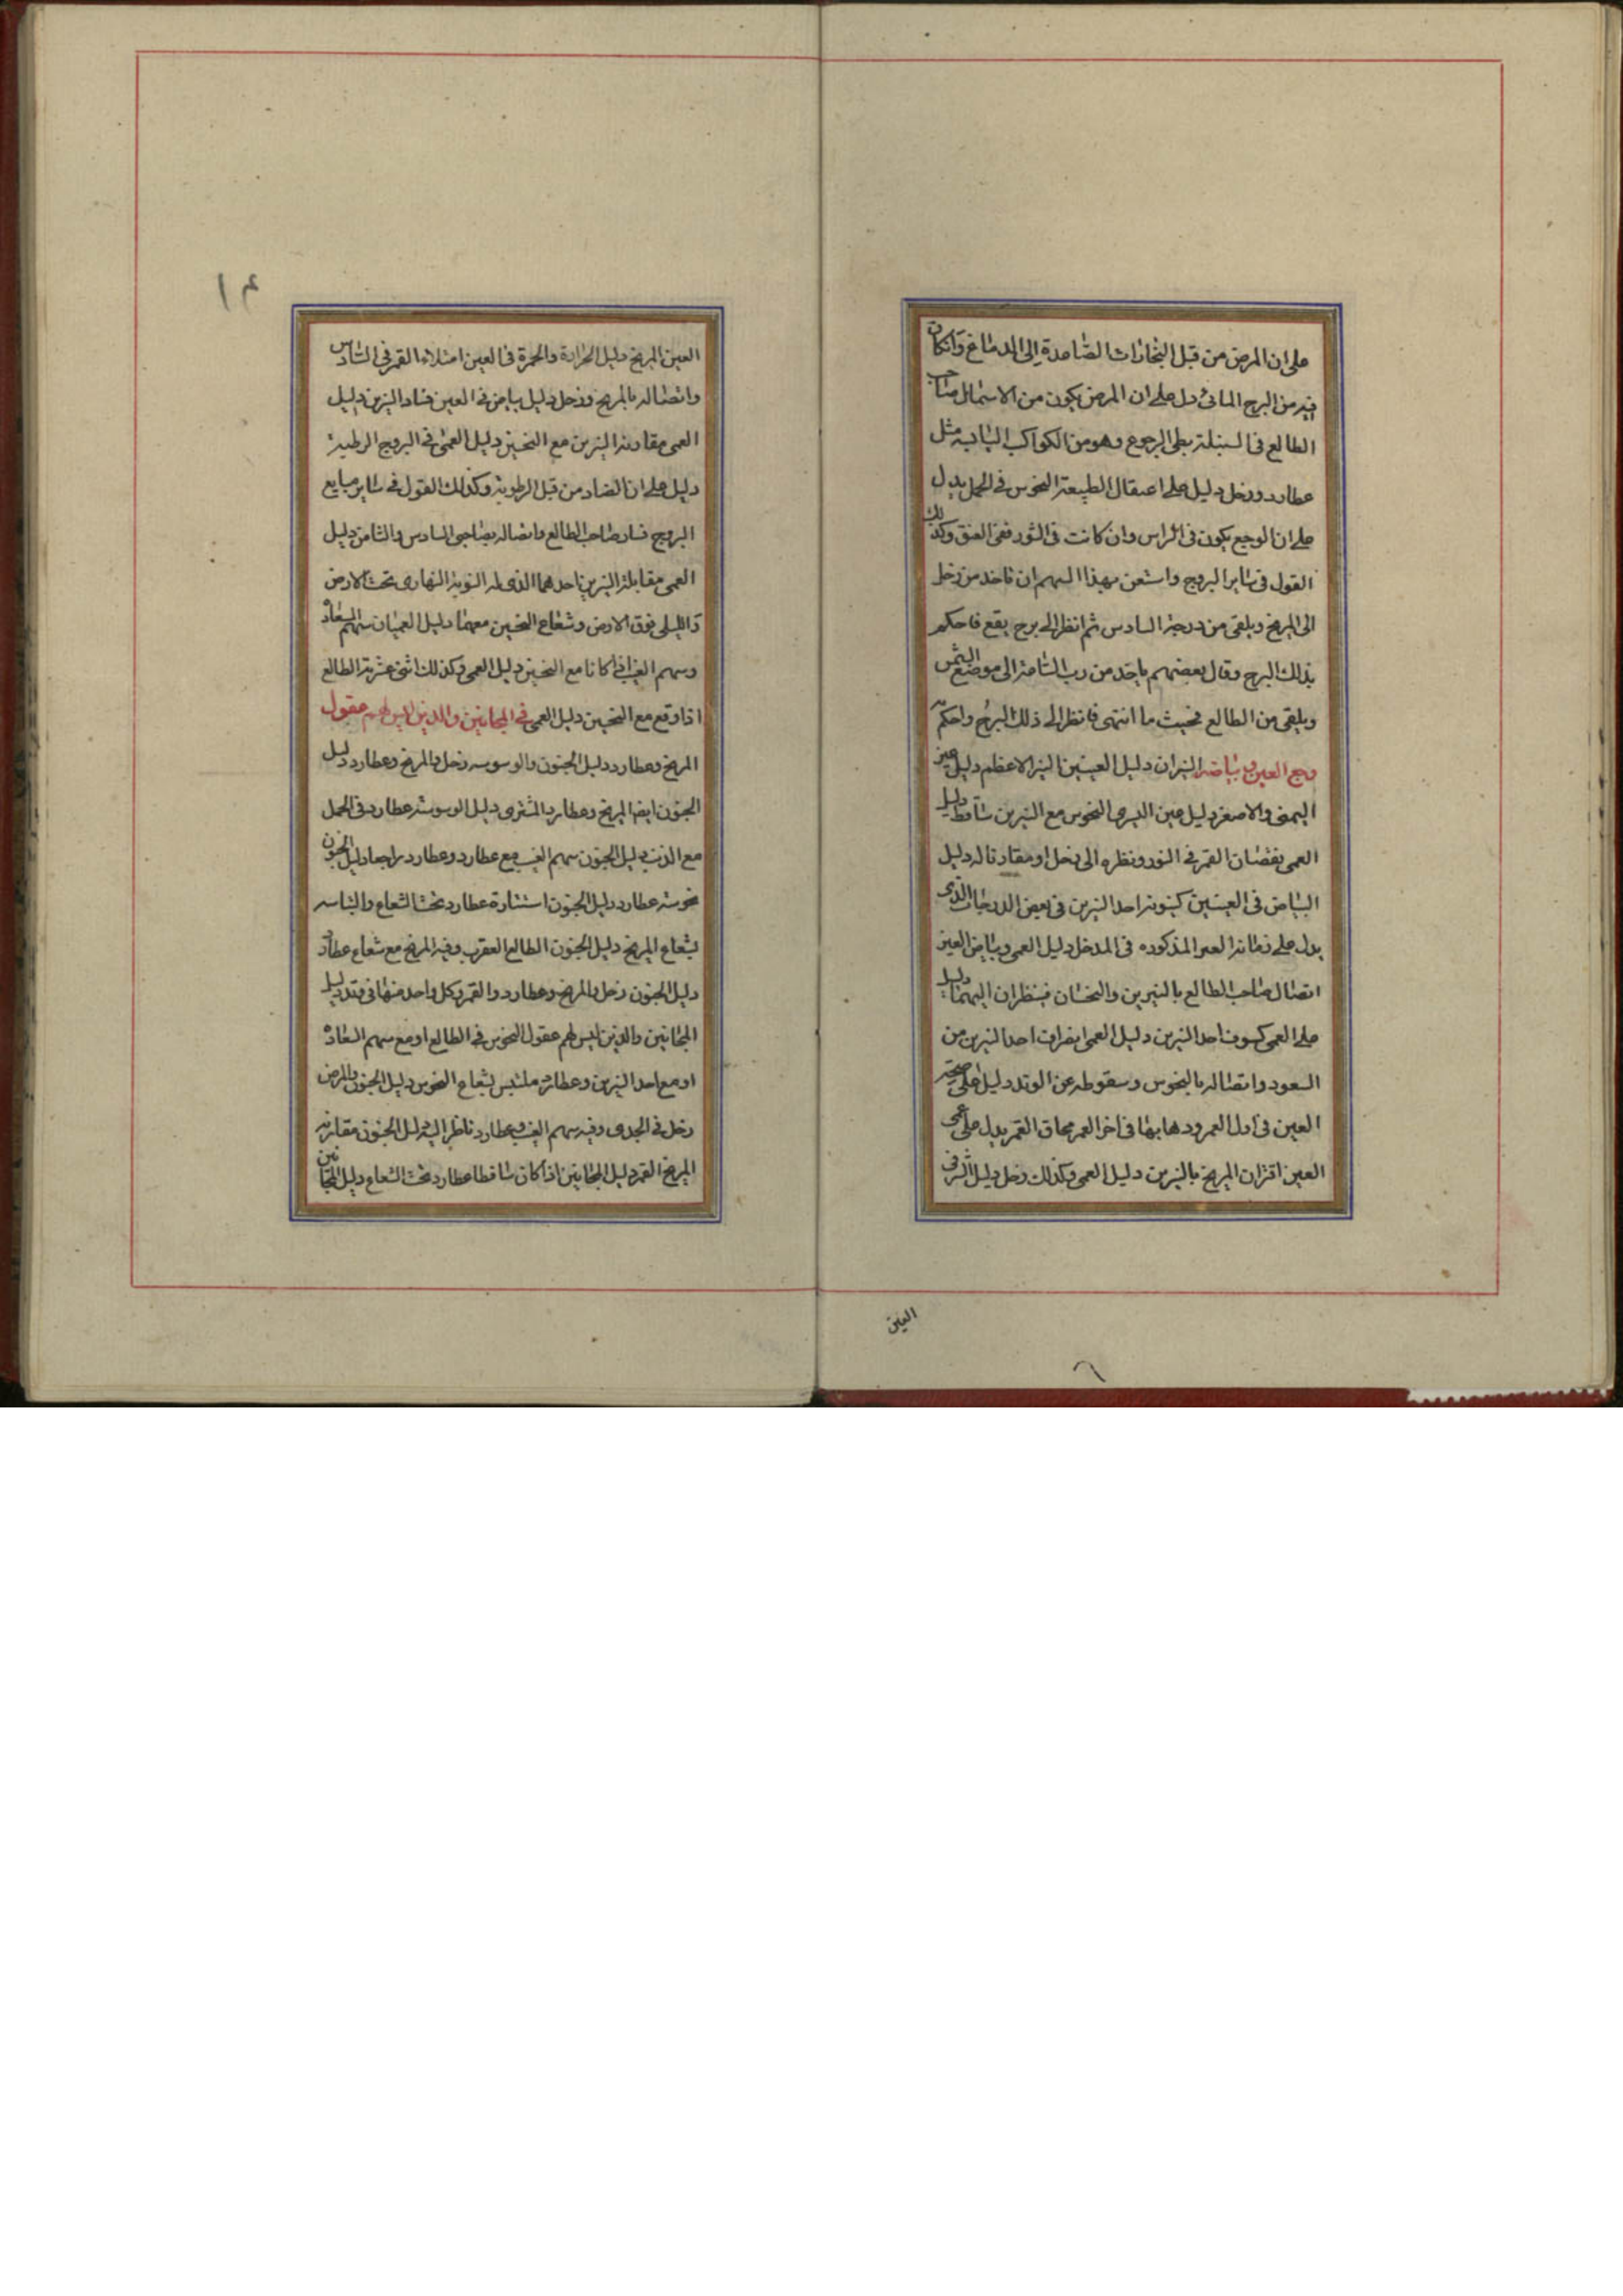 على ان المرض من قبل البخارات الصاعدة الى الدماغ وانكان
فيه من البرج المائى دل على ان المرض يكون من الاسهال صاحب
الطالع فى السنبلة بطى الرجوع وهو من الكواكب اليابسه مثل
عطارد وزحل دليل على اعتقال الطبيعة النحوس فى الحمل يدل
على ان الوجع يكون فى الراس وان كانت فى الثور ففى العنق وكذلك
القول فى ساير البروج واستعن بهذا السهم ان تاخذ من زحل
الى المريخ ويلقى من درجة السادس ثم انظر الى برج يقع فاحكم
بذلك البرج وقال بعضهم ياخذ من رب الثامنة الى موضع الشمس
ويلقى من الطالع فحيث ما انتهى فانظر الى ذلك البرج واحكم
وجع العين وبياضه النيران دليل العينين النير الاعظم دليل عين
اليمنى والاصغر دليل عين اليسرى النحوس مع النيرين ساقط دليل
العمى نقصان القمر فى النور ونظره الى زحل او مقارنا له دليل
البياض فى العينين كينونة احد النيرين فى بعض الدرجات الذى
يدل على زمانة العين المذكوره فى المدخل دليل العمى وبياض العين
اتصال صاحب الطالع بالنيرين والنحسان فينظران اليهما دليل
على العمى كسوف احد النيرين دليل العمى انصراف احد النيرين من
السعود واتصاله بالنحوس وسقوطه عن الوتد دليل على صحة
العين فى اول العمر وذهابها فى اخر العمر محاق القمر يدل على عمى
العين اقتران المريخ بالنيرين دليل العمى وكذلك زحل دليل
العين
العين المريخ دليل الحرارة والحمرة فى العين امتلاء القمر فى السادس
واتصاله بالمريخ وزحل دليل بياض فى العين فساد النيرين دليل
العمى مقارنة النيرين مع النحسين دليل العمى فى البروج الرطبة
دليل على ان الفساد من قبل الرطوبة وكذلك القول فى ساير طبايع
البروج فساد صاحب الطالع واتصاله بصاحبى السادس والثامن دليل
العمى مقابلة النيرين احدهما الذى له النوبة النهارى تحت الارض
والليلى فوق الارض وشعاع النحسين معهما دليل العميان سهم السعادة
وسهم الغيب اذا كانا مع النحسين دليل العمى وكذلك اثنى عشرية الطالع
اذا وقع مع النحسين دليل العمى فى المجانين والذين ليس لهم عقول
المريخ وعطارد دليل الجنون والوسوسه زحل والمريخ وعطارد دليل
الجنون ايضا المريخ وعطارد المشترى دليل الوسوسة عطارد فى الحمل
مع الذنب دليل الجنون سهم الغيب مع عطارد وعطارد راجعا دليل الجنون
نحوسة عطارد دليل الجنون استنارة عطارد تحت الشعاع والتباسه
بشعاع المريخ دليل الجنون الطالع العقرب وفيه المريخ مع شعاع عطارد
دليل الجنون زحل والمريخ وعطارد والقمر وكل واحد منها فى وتد دليل
المجانين والذين ليس لهم عقول النحوس فى الطالع او مع سهم السعادة
او مع احد النيرين وعطارد ملتبس بشعاع النحوس دليل الجنون والمرض
زحل فى الجدى وفيه سهم الغيب وعطارد ناظر اليه دليل الجنون مقارنة
المريخ القمر دليل المجانين اذا كان ساقطا عطارد تحت الشعاع دليل المجانين